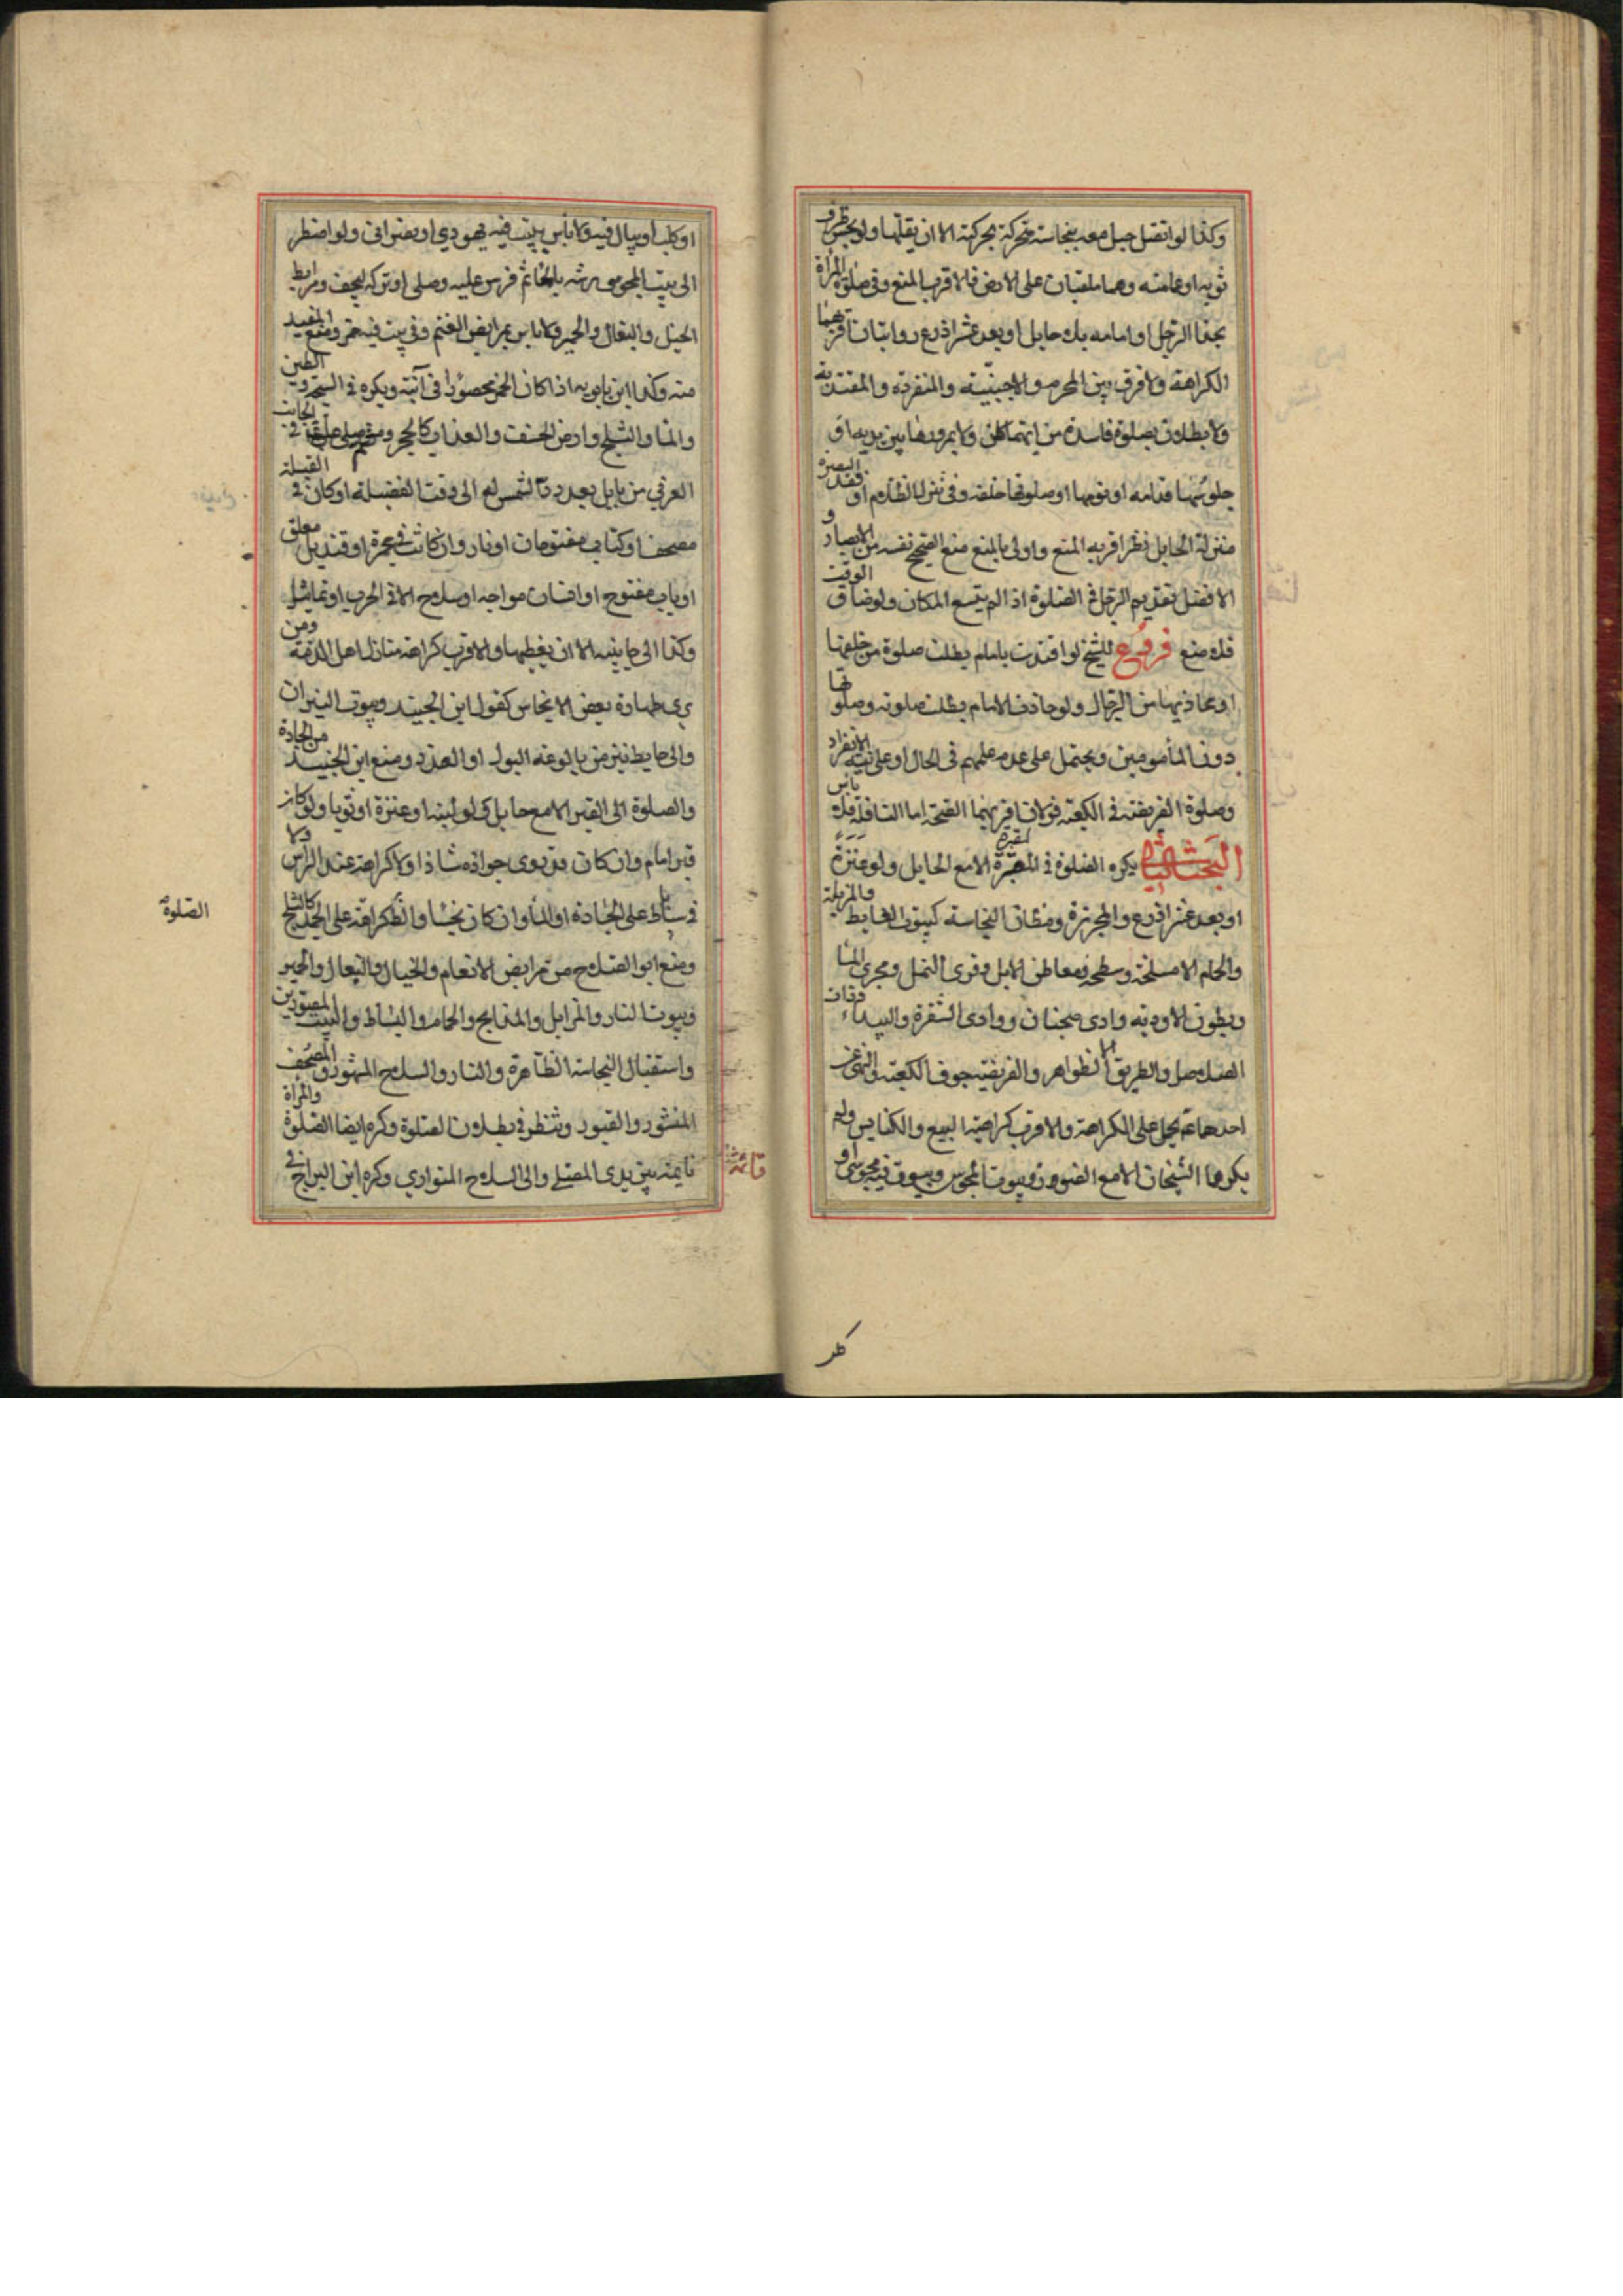 وكذا لو اتصل حبل معه بنجاسة متحركة بحركته الا ان يقلها ولو نجس طرف
ثوبه او عمامته وهما ملقيان على الارض فالاقرب المنع وفى صلوة المراة
بحذا الرجل او امامه بلا حايل او بعد عشر اذرع روايتان اقربهما
الكراهة ولا فرق بين المحرم والاجنبية والمنفردة والمقتدية
ولا بطلان بصلوة فاسدة من ايهما كان ولا بمرورها بين يديه او
جلوسها قدامه او نومها او صلوتها خلفه وفى تنزل الظلام او فقد البصر
منزلة الحايل نظر اقربه المنع واولى بالمنع منع الصحيح نفسه من الابصار و
الافضل تقديم الرجل فى الصلوة اذا لم يتسع المكان ولو ضاق الوقت
فلا منع فروع للشيخ لو اقتدت بامام بطلت صلوة من خلفها
او يحاذيها من الرجال ولو حاذت الامام بطلت صلوته وصلوتها
دون المأمومين ويحتمل على عدم علمهم فى الحال او على نية الانفراد
وصلوة الفريضة فى الكعبة قولان اقربهما الصحة اما النافلة فلا بأس
البحث الثانى يكره الصلوة فى المقبرة الا مع الحايل ولو عنزة
او بعد عشر اذرع والمجزرة ومظان النجاسة كبيوت الغايط والمزبلة
والحمام الا مسلخه وسطحه ومعاطن الابل وقرى النمل ومجرى الما
وبطون الاودية وادى ضجنان ووادى الشقرة والبيداء وذات
الصلاصل والطريق لا الظواهر والفريضة جوف الكعبة والنهى عن
احدهما يحمل على الكراهة والاقرب كراهية البيع والكنايس ولم
يكرهها الشيخان الا مع الصور وبيوت المجوس وبيوت فيه مجوسى او
كلب
او كلب او يبال فيه ولا بأس ببيت فيه يهودى او نصرانى ولو اضطر
الى بيت المجوسى رشه بالماء ثم فرش عليه وصلى او تركه ليجف ومرابط
الخيل والبغال والحمير ولا باس بمرابض الغنم وفى بيت فيه خمر ومنع المفيد
منه وكذا ابن بابويه اذا كان الخمر محصورا فى آنية ويكره فى السبخة والطين
والما والثلج وارض الخسف والعذاب كالحجر فى الجانب
الغربى من بابل بعد رد الشمس له الى وقت الفضيلة او كان فى القبلة
مصحف او كتاب مفتوحان او نار وان كانت فى مجمرة او قنديل معلق
او باب مفتوح او انسان مواجه او سلاح الا فى الحرب او تماثيل
وكذا الى جانبيه الا ان يغطيها والاقرب كراهة منازل اهل الذمة ومن
يرى طهارة بعض الانجاس كقول ابن الجنيد وبيوت النيران
والى حايط ينز من بالوعة البول او العذرة ومنع ابن الجنيد من الجادة
والصلوة الى القبر الا مع حايل كلو لبنة او عنزة او ثوبا ولو كان
قبر امام وان كان قد روى جوازه شاذا ولا كراهة عند الراس ولا
فى ساباط على الجادة او الما وان كان نجسا والظ كراهة على الجمد كالثلج
ومنع ابو الصلاح من مرابض الانعام والخيل والبغال والحمير
وبيوت النار والمزابل والمذابح والحمام والبساط والبيت المصورين
واستقبال النجاسة الظاهرة والنار والسلاح المشهور والمصحف
المنشور والقبور وتنظر فى بطلان الصلوة وكره ايضا الصلوة والمراة
نايمة بين يدى المصلى والى السلاح المتوارى وكره ابن البراج فى
الصلوة
قائمة